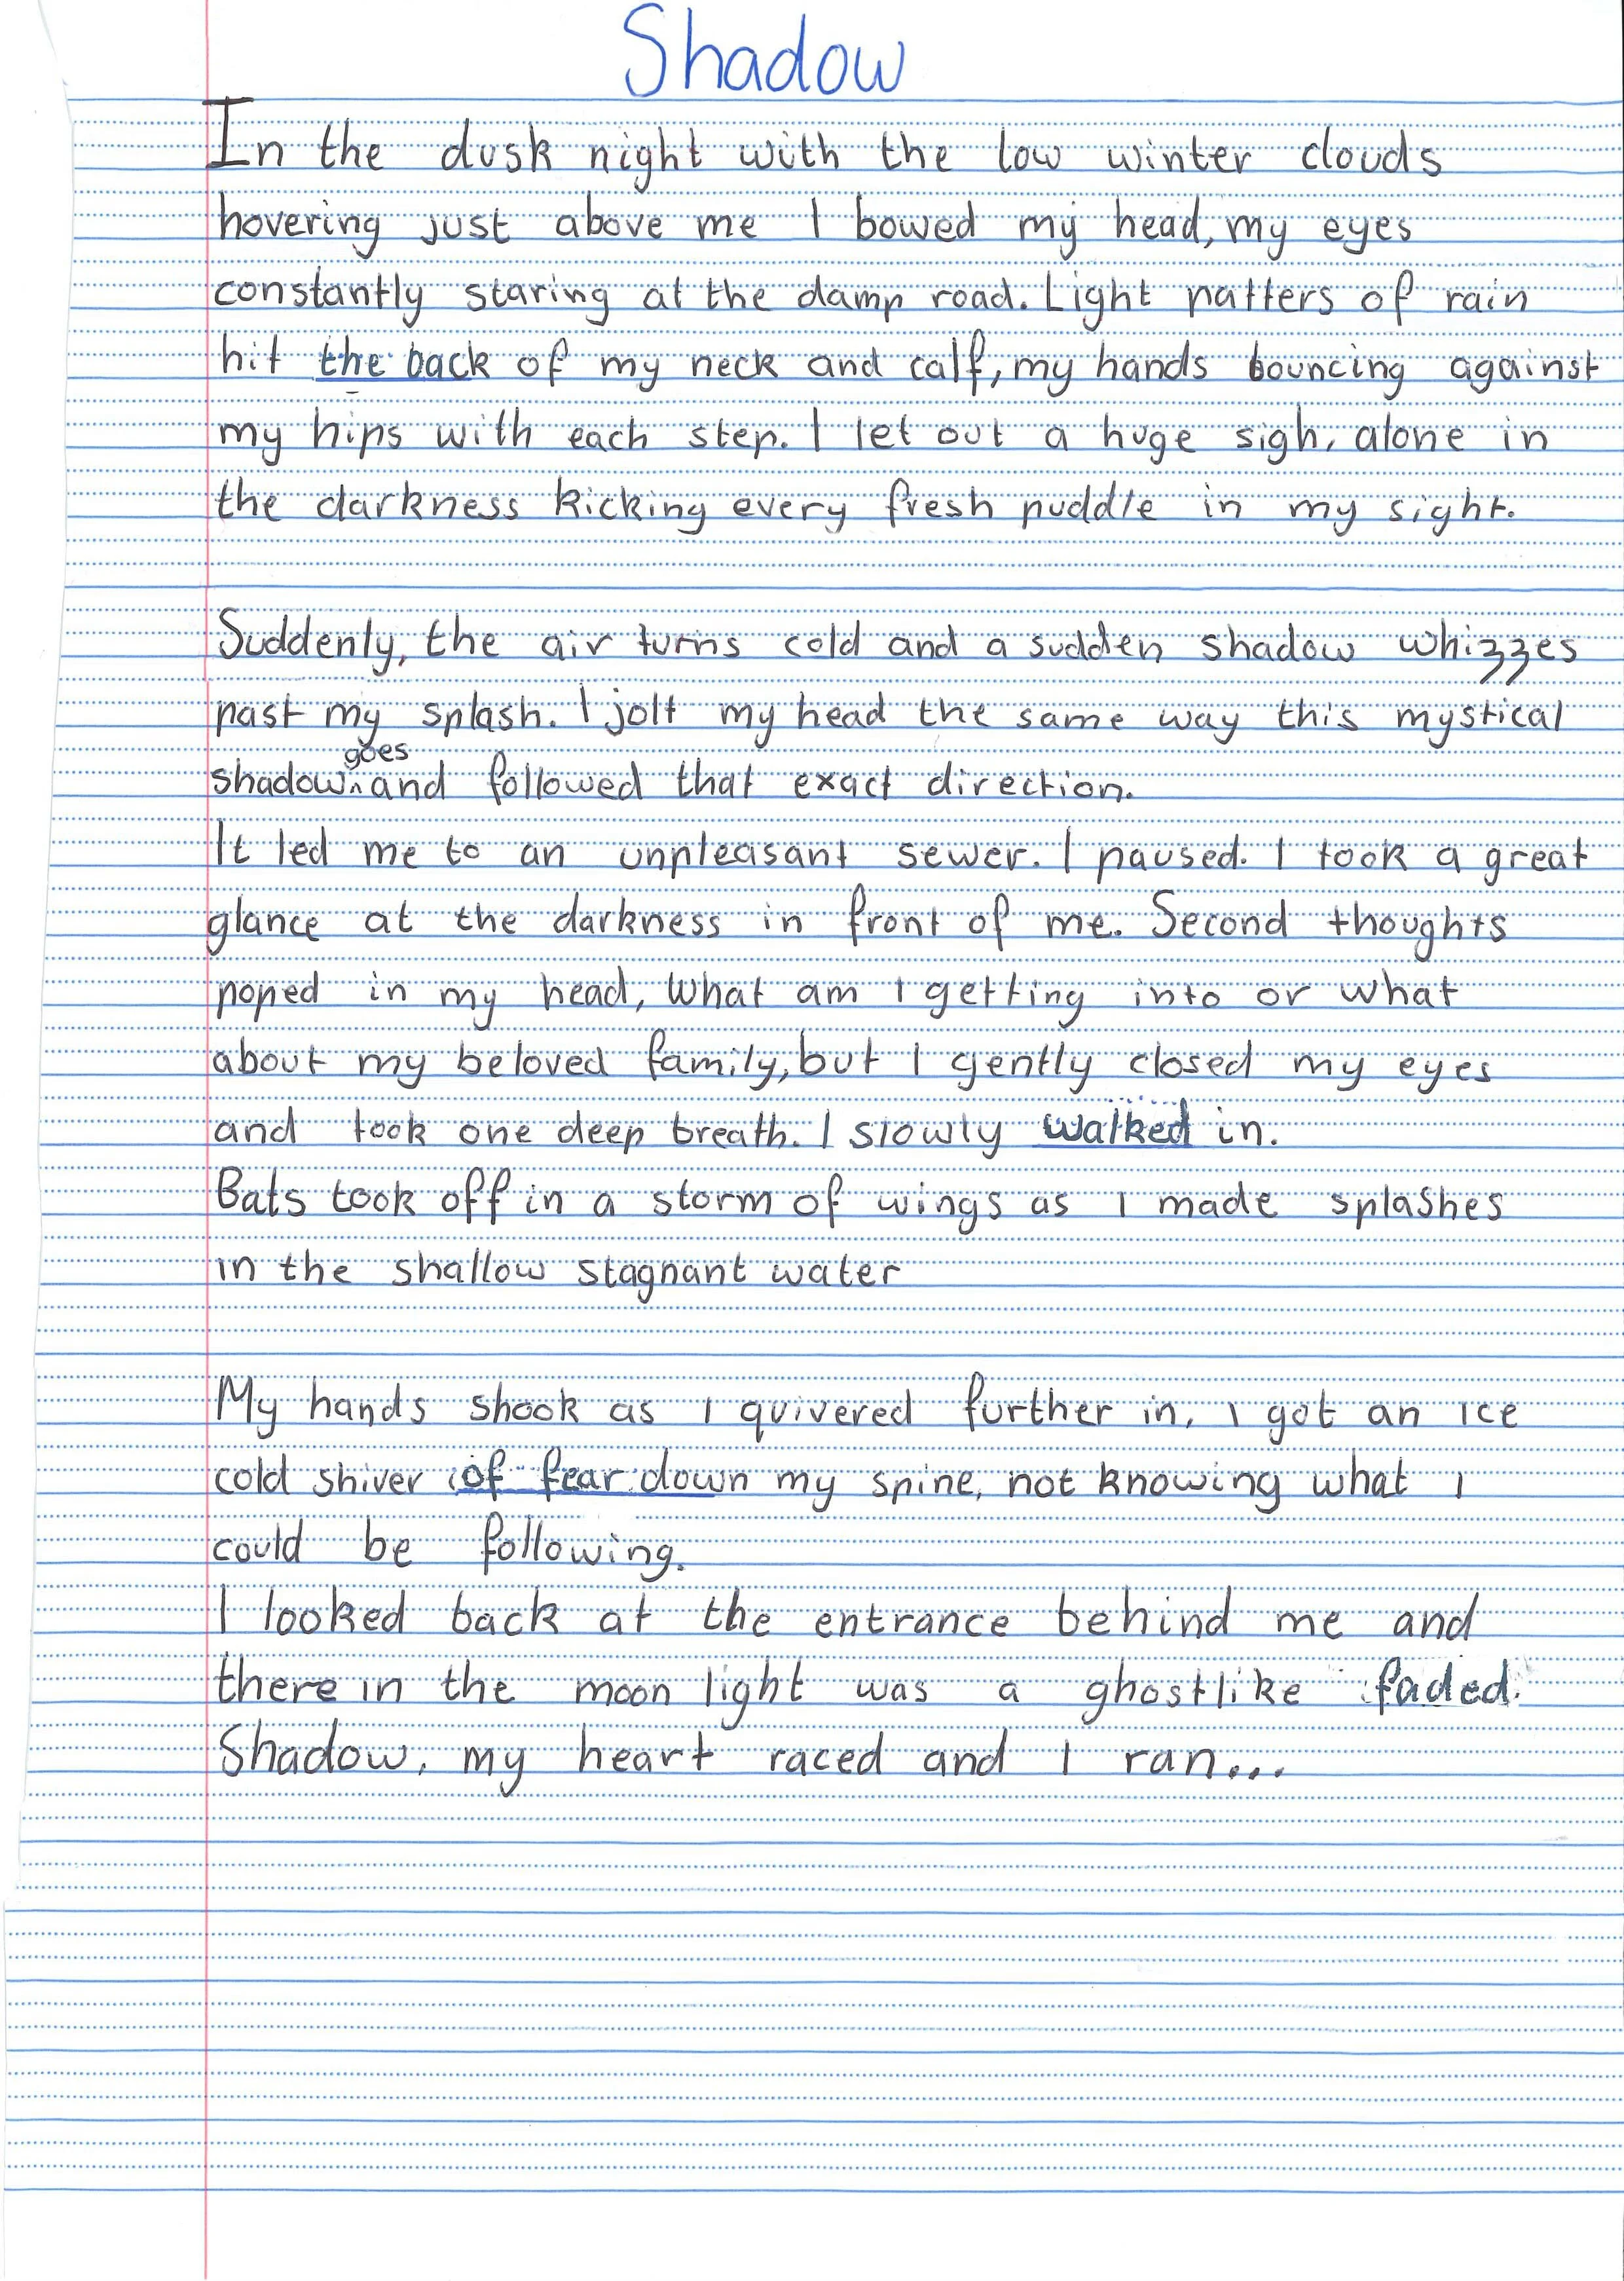 Shadow
In the dusk night with the low winter clouds
hovering just above me I bowed my head, my eyes
constantly staring at the damp road. Light patters of rain
hit the back of my neck and calf, my hands bouncing against
my hips with each step. I let out a huge sigh, alone in
the darkness kicking every fresh puddle in my sight.
Suddenly, the air turns cold and a sudden shadow whizzes
past my splash. I jolt my head the same way this mystical
goes
shadow^and followed that exact direction.
It led me to an unpleasant sewer. I paused. I took a great
glance at the darkness in front of me. Second thoughts
poped in my head, What am I getting into or what
about my beloved family, but I gently closed my eyes
and took one deep breath. I slowly walked in.
Bats took off in a storm of wings as I made splashes
in the shallow stagnant water
My hands shook as I quivered further in, I got an ice
cold shiver of fear down my spine, not knowing what I
could be following.
I looked back at the entrance behind me and
there in the moon light was a ghostlike faded.
Shadow, my heart raced and I ran...